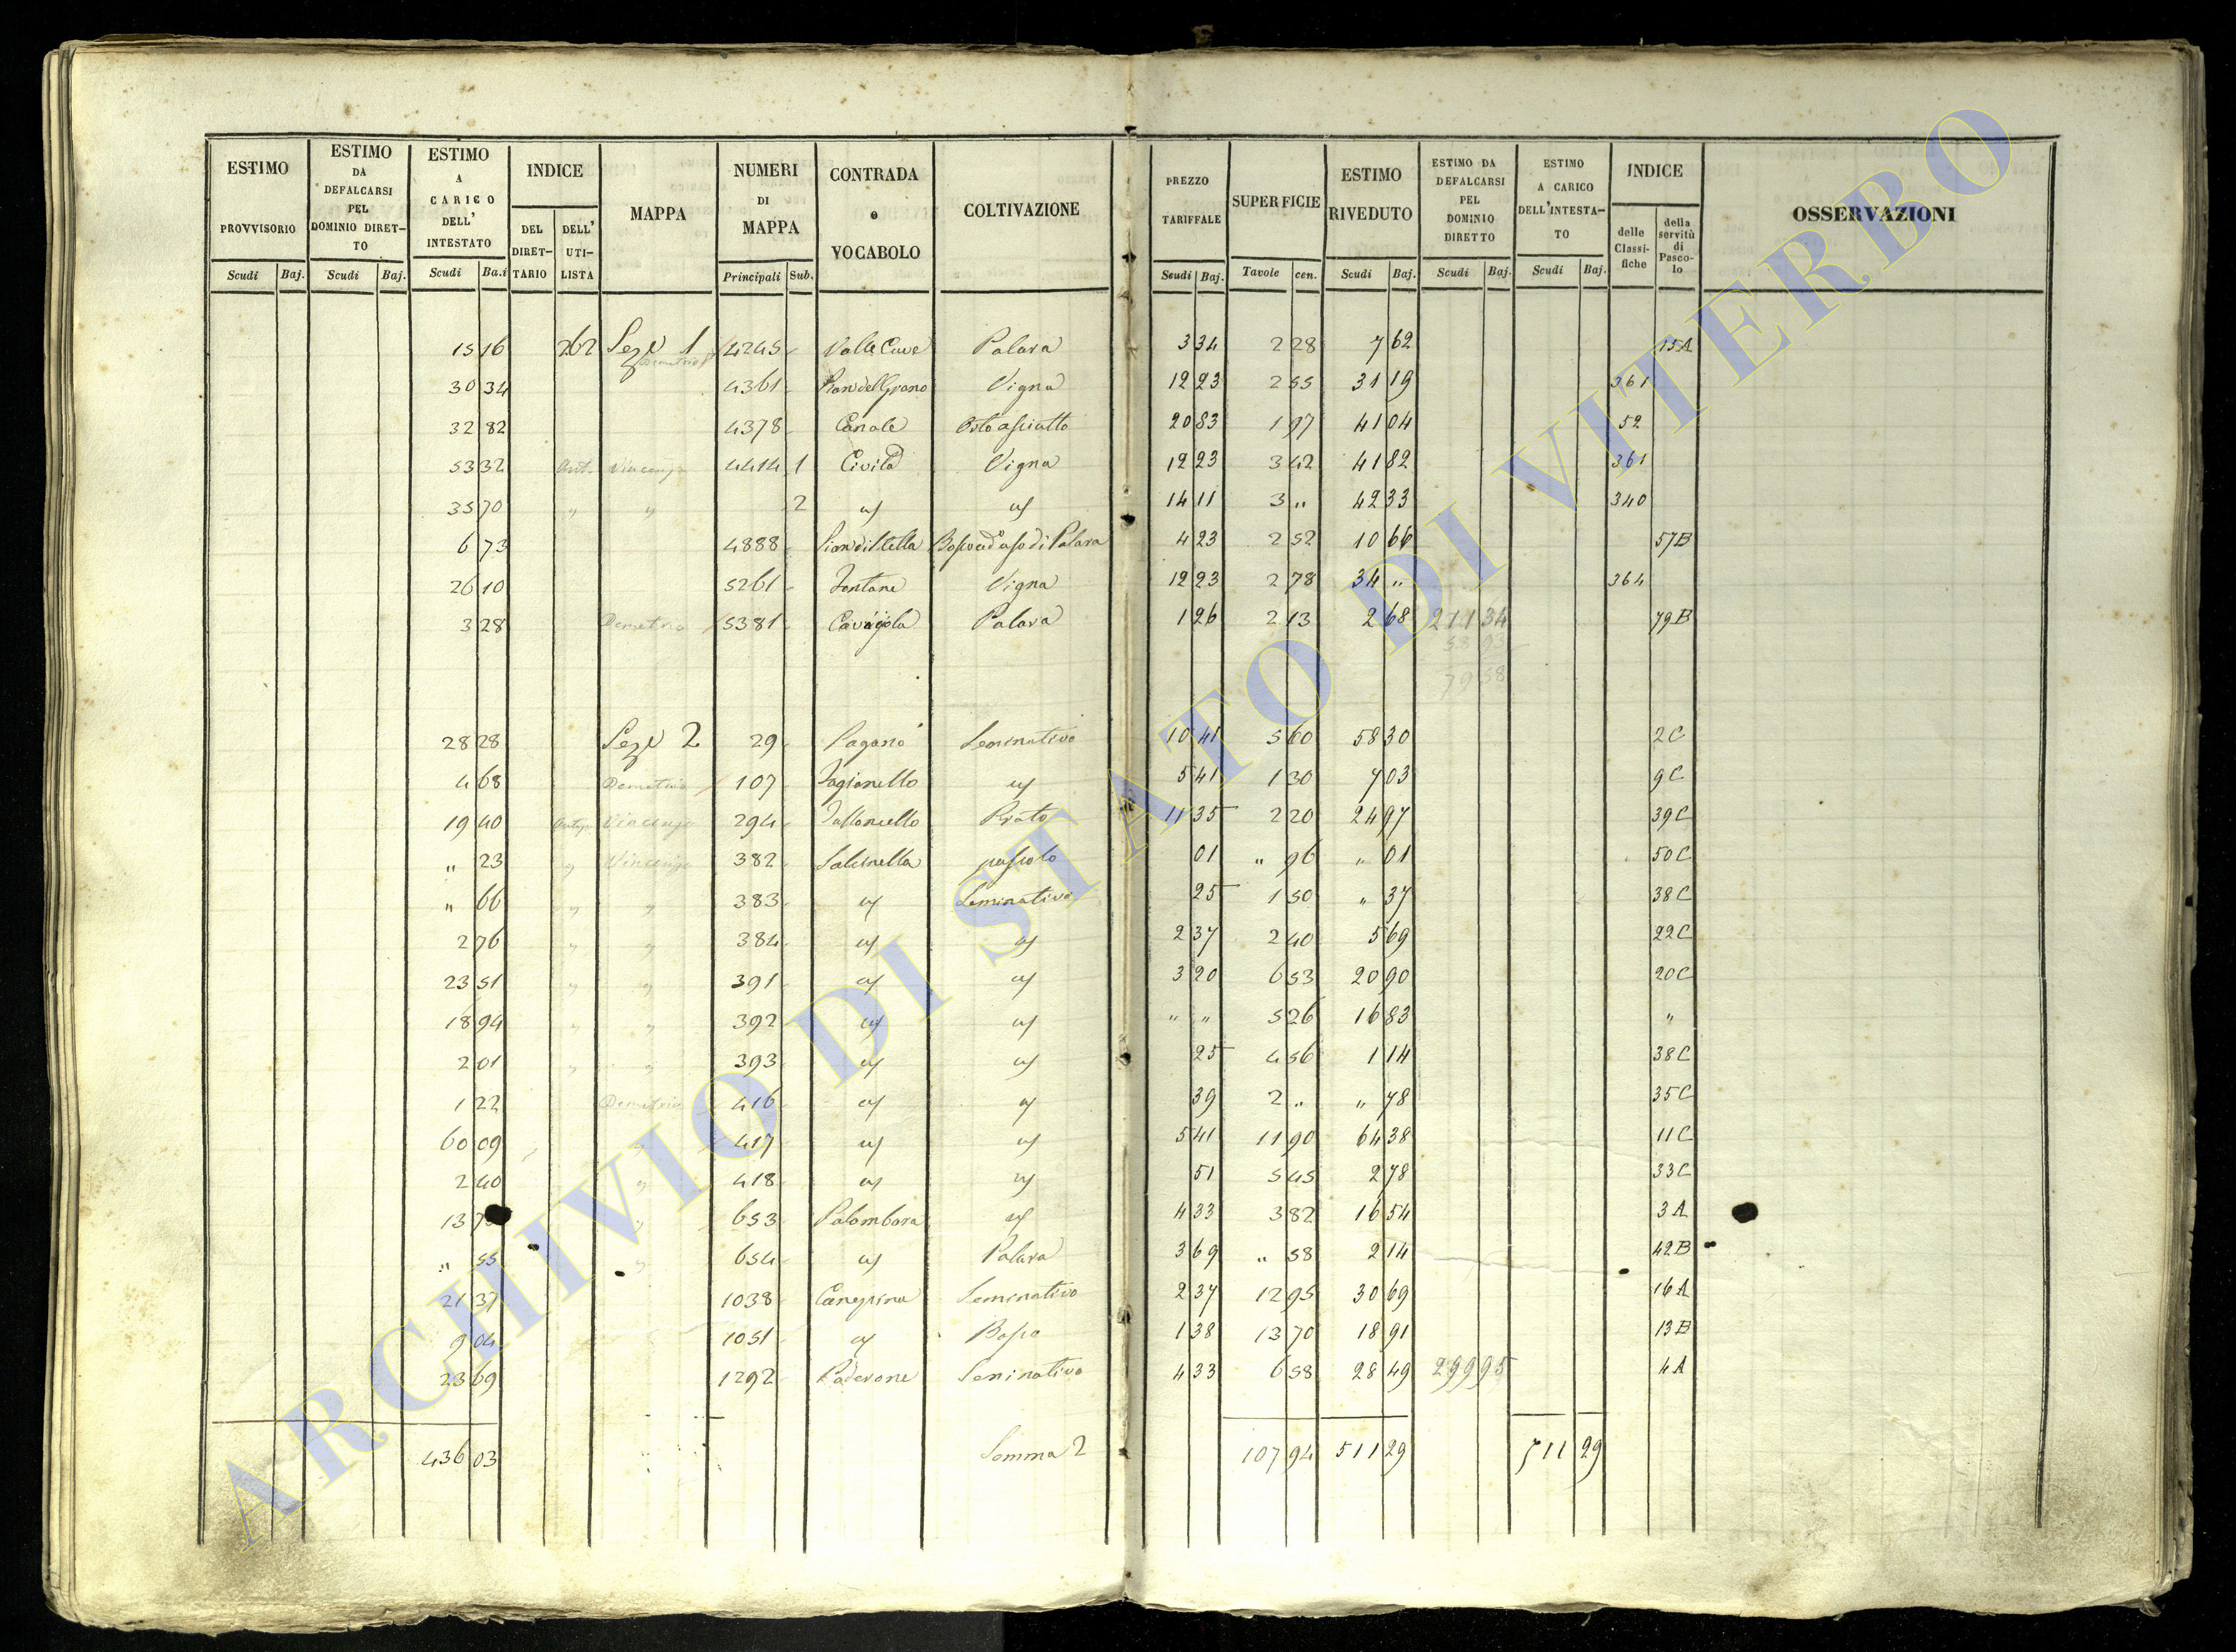 ESTIMO PROVVISORIO Scudi Baj.
ESTIMO DA DEFALCARSI PEL DOMINIO DIRETTO Scudi Baj.
ESTIMO A CARICO DELL' INTESTATO Scudi Ba.i
INDICE DEL DIRETTARIO DELL' UTILISTA
MAPPA
NUMERI DI MAPPA Principali Sub.
CONTRADA o VOCABOLO
COLTIVAZIONE
PREZZO TARIFFALE Scudi Baj.
SUPERFICIE Tavole cen.
ESTIMO RIVEDUTO Scudi Baj.
ESTIMO DA DEFALCARSI PEL DOMINIO DIRETTO Scudi Baj.
ESTIMO A CARICO DELL'INTESTATO Scudi Baj.
INDICE delle Classifiche della servitù di Pascolo
OSSERVAZIONI
15 16 262 Sez.e 1 Demetrio 4245 Valle Cave Palara 3 34 2 28 7 62 15A
30 34 4361 Pian del Grano Vigna 12 23 2 55 31 19 361
32 82 4378 Canale Orto asciutto 20 83 1 97 41 04 52
53 32 Ant. Vincenzo 4414 1 Civita Vigna 12 23 3 42 41 82 361
35 70 " " 2 id id 14 11 3 " 42 33 340
6 73 4888 Pian di Stella Bosco ad uso di Palara 4 23 2 52 10 66 57B
26 10 5261 Fontane Vigna 12 23 2 78 34 " 364
3 28 Demetrio 5381 Palara 1 26 2 13 2 68 211 34 79B
58 93
79 58
28 28 Sez.e 2 29 Pagano Seminativo 10 41 5 60 58 30 2C
4 68 Demetrio 107 Fagianello id 5 41 1 30 7 03 9C
19 40 Vincenzo 294 Prato 11 35 2 20 24 97 39C
" 23 " Vincenzo 382 Salcinella pascolo 01 " 96 " 01 50C
" 66 " " 383 id Seminativo 25 1 50 " 37 38C
2 76 " " 384 id id 2 37 2 40 5 69 22C
23 51 " " 391 id id 3 20 6 53 20 90 20C
18 94 " " 392 id id " " 5 26 16 83 "
2 01 " " 393 id id 25 4 56 1 14 38C
1 22 Demetrio 416 id id 39 2 " " 78 35C
60 09 " 417 id id 5 41 11 90 64 38 11C
2 40 " 418 id id 51 5 45 2 78 33C
13 7 " 653 Palombara id 4 33 3 82 16 54 3A
" 55 " 654 id Palara 3 69 " 58 2 14 42B
21 37 1038 Canepina Seminativo 2 37 12 95 30 69 16A
9 04 1051 id Bosco 1 38 13 70 18 91 13B
23 69 1292 Poderone Seminativo 4 33 6 58 28 49 299 95 4A
436 03 Somma 2 107 94 511 29 511 29
ARCHIVIO DI STATO DI VITERBO